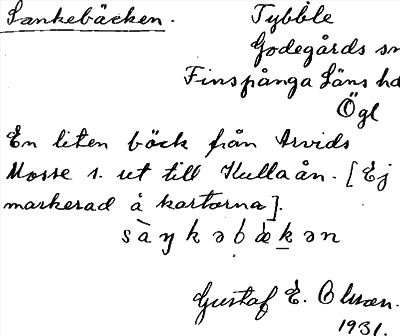 Sankebäcken. Tybble
Godegårds sn
Finspånga Läns hd
Ögl
En liten bäck från Arvids
Mosse s. ut till Kullaån. [Ej
markerad å kartorna].
sàŋkəbækən
Gustaf E. Olsson.
1931.